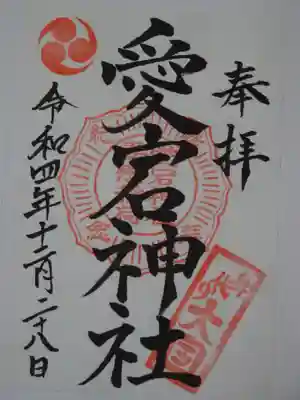 奉拝
愛宕神社
令和四年十二月二十八日